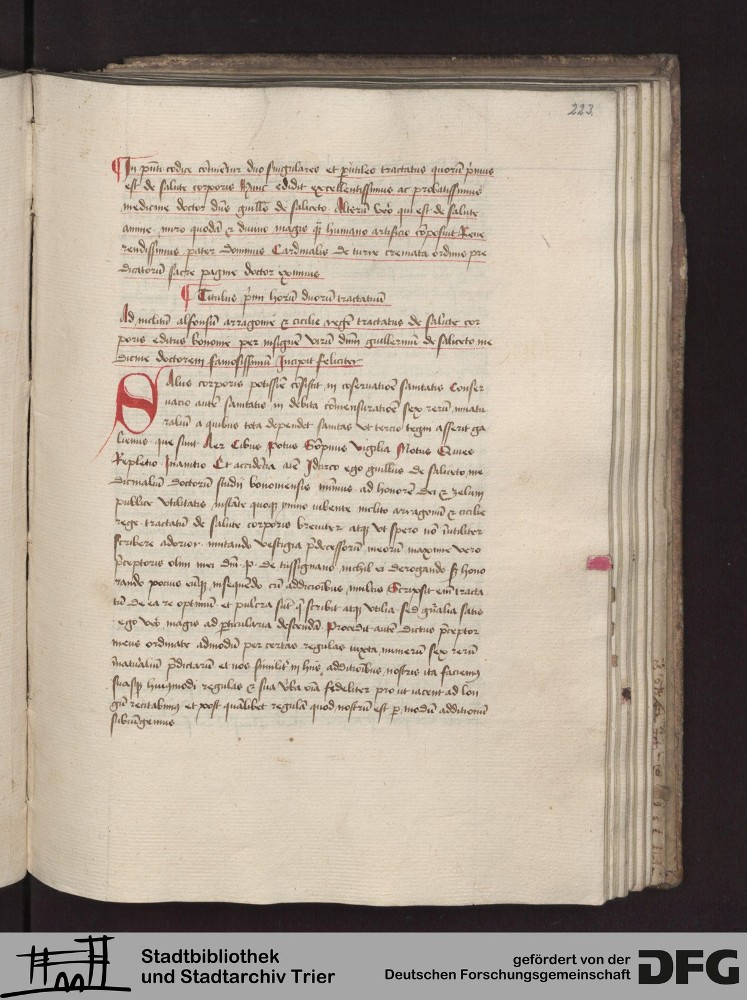 223
In pnti codice cotinetur duo singulares et putiles tractatus quoru primus
est de salute corporis Hunc edidit excellentissimus ac probatissimus
medicine doctor dns guillms de saliceto Alteru vero qui est de salute
anime miro quoda & diuino magis qz humano artificio coposuit Reue
rendissimus pater dominus Cardinalis de turre cremata ordinis pre
dicatoru sacre pagine doctor eximius
Titulus primi horu duoru tractatuum
Ad inclitu alfonsu arragonie & cicilie rege tractatus de salute cor
poris editus bononie per insigne viru dnm guillermu de saliceto me
dicine doctorem famosissimu Incipit feliciter
Salus corporis potissime cosistit in coseruatioe sanitatis Conser
uacio aute sanitatis in debita comensuratioe sex reru innatu
raliu a quibus tota dependet sanitas vt tercio tegni asserit ga
lienus que sunt Aer Cibus Potus Sompnus Vigilia Motus Quies
Repletio Inanitio Et accidetia aie Idcirco ego guillms de saliceto me
dicinaliu doctoru studii bononiensis minimus ad honore dei & zelum
publice vtilitatis instante quoqz ymmo iubente inclito arragonu & cicilie
rege tractatu de salute corporis breuiter atqz vt spero no inutiliter
scribere adorior imitando vestigia pdecessoru meoru maxime vero
pceptoris olim mei dni p de tussignano nichil ei derogando sz hono
rando pocius eumqz insequedo cu addicioibus multis Scripsit eni tracta
tu de ea re optimu et pulcra sut q scribit atqz vtilia sed gnalia satis
ego vero magis ad pticularia descenda Procedit aute dictus pceptor
meus ordinate admodu per certas regulas iuxta numeru sex reru
innaturaliu pdictaru et nos similiter in hiis additioibus nostris ita faciemus
suasqz huiusmodi regulas & sua vba via fideliter prout iacent ad lon
gu recitabimus et post qualibet regula quod nostru est p modu additionu
subiungemus
Stadtbibliothek
und Stadtarchiv Trier
gefördert von der
Deutschen Forschungsgemeinschaft
DFG